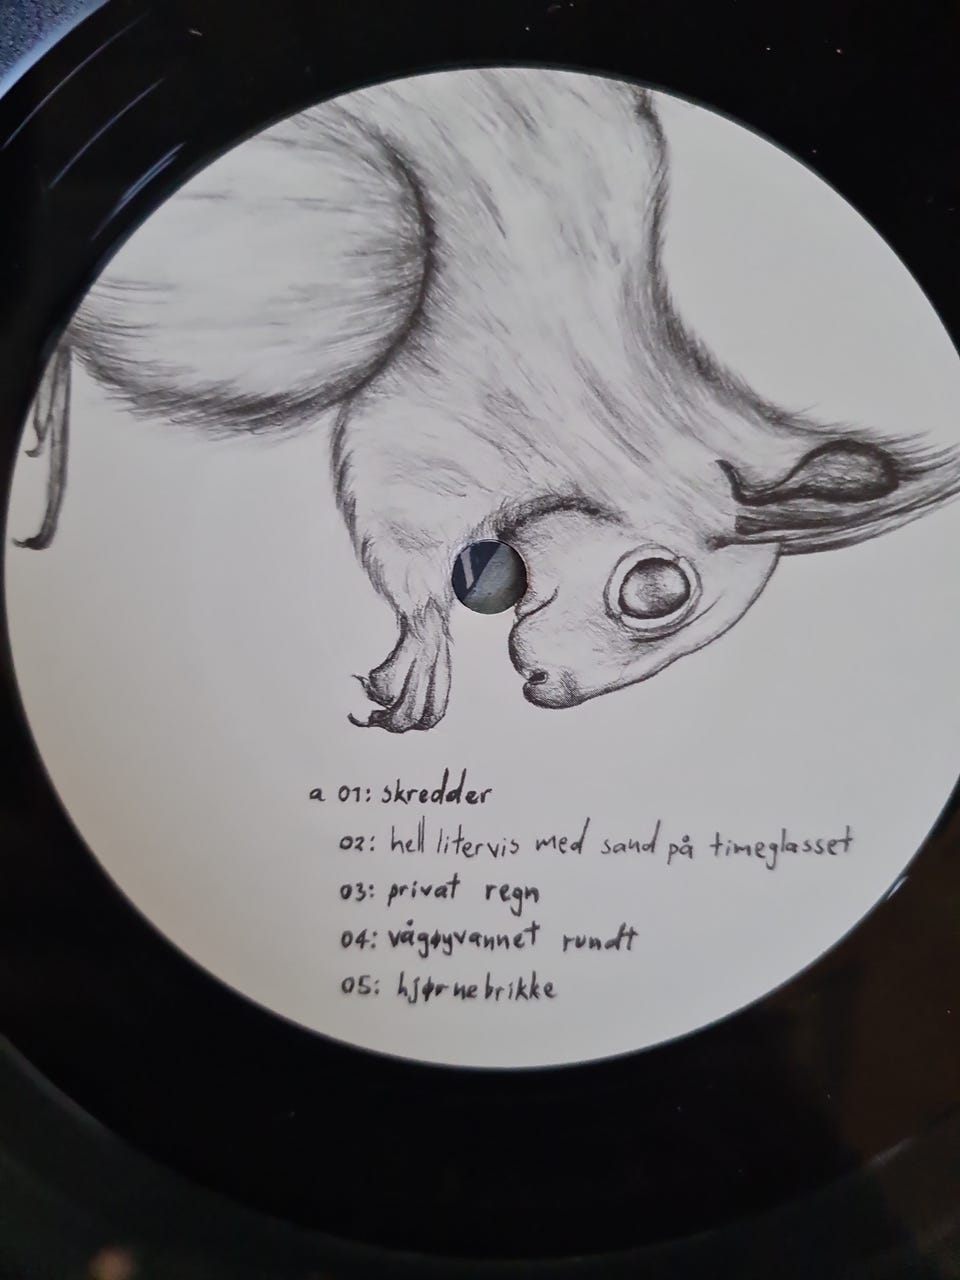 a 01: skredder
02: hell litervis med sand på timeglasset
03: privat regn
04: vågøyvannet rundt
05: hjørnebrikke